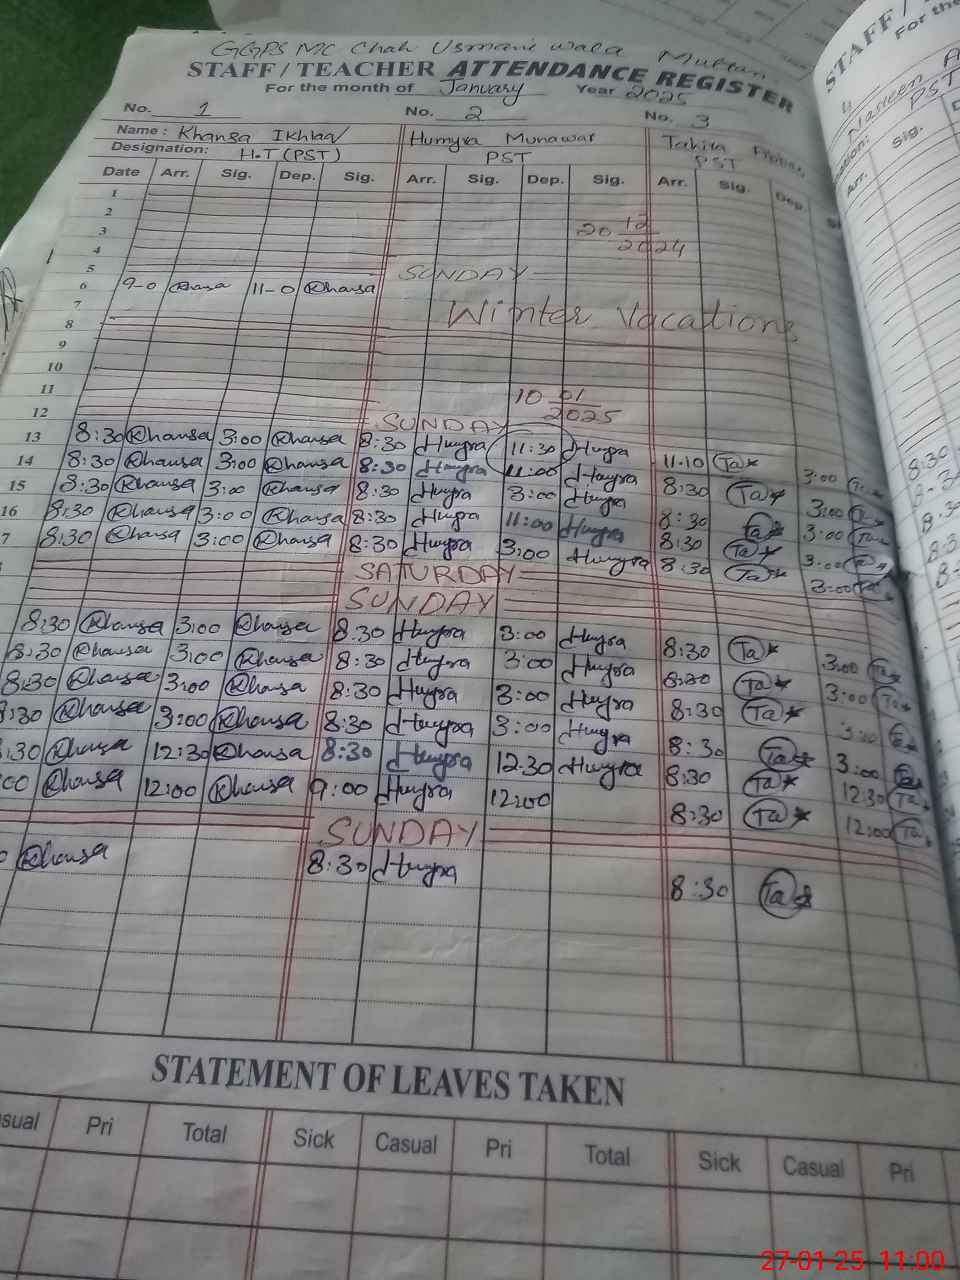 GGPS MC Chah Usmane wala Multan
STAFF / TEACHER ATTENDANCE REGISTER
For the month of January Year 2025
No. 1 No. 2 No. 3
Name : Khansa Ikhlaq Humyra Munawar Tahira
Designation: H.T (PST) PST PST
Date Arr. Sig. Dep. Sig. Arr. Sig. Dep. Sig. Arr. Sig. Dep.
1
2
3 20 12 2024
4
5 SUNDAY
6 9-0 Khansa 11-0 Khansa
7 Winter Vacations
8
9
10
11 10 01 2025
12 SUNDAY
13 8:30 Khansa 3:00 Khansa 8:30 Humyra 11:30 Humyra 11.10 Ta 3:00 Ta
14 8:30 Khansa 3:00 Khansa 8:30 Humyra 11:00 Humyra 8:30 Ta 3:00 Ta
15 8:30 Khansa 3:00 Khansa 8:30 Humyra 3:00 Humyra 8:30 Ta 3:00 Ta
16 8:30 Khansa 3:00 Khansa 8:30 Humyra 11:00 Humyra 8:30 Ta 3:00 Ta
7 8:30 Khansa 3:00 Khansa 8:30 Humyra 3:00 Humyra 8:30 Ta 3:00 Ta
SATURDAY
SUNDAY
8:30 Khansa 3:00 Khansa 8:30 Humyra 3:00 Humyra 8:30 Ta 3:00 Ta
8:30 Khansa 3:00 Khansa 8:30 Humyra 3:00 Humyra 8:30 Ta 3:00 Ta
8:30 Khansa 3:00 Khansa 8:30 Humyra 3:00 Humyra 8:30 Ta 3:00
:30 Khansa 3:00 Khansa 8:30 Humyra 3:00 Humyra 8:30 Ta 3:00 Ta
:30 Khansa 12:30 Khansa 8:30 Humyra 12.30 Humyra 8:30 Ta 12:30 Ta
:00 Khansa 12:00 Khansa 9:00 Humyra 12:00 8:30 Ta 12:00 Ta
SUNDAY
0 Khansa 8:30 Humyra 8:30 Ta
STATEMENT OF LEAVES TAKEN
sual Pri Total Sick Casual Pri Total Sick Casual Pri
STAFF /
For the
Nasreen
PST
Arr. Sig.
8:30
27-01-25 11:00